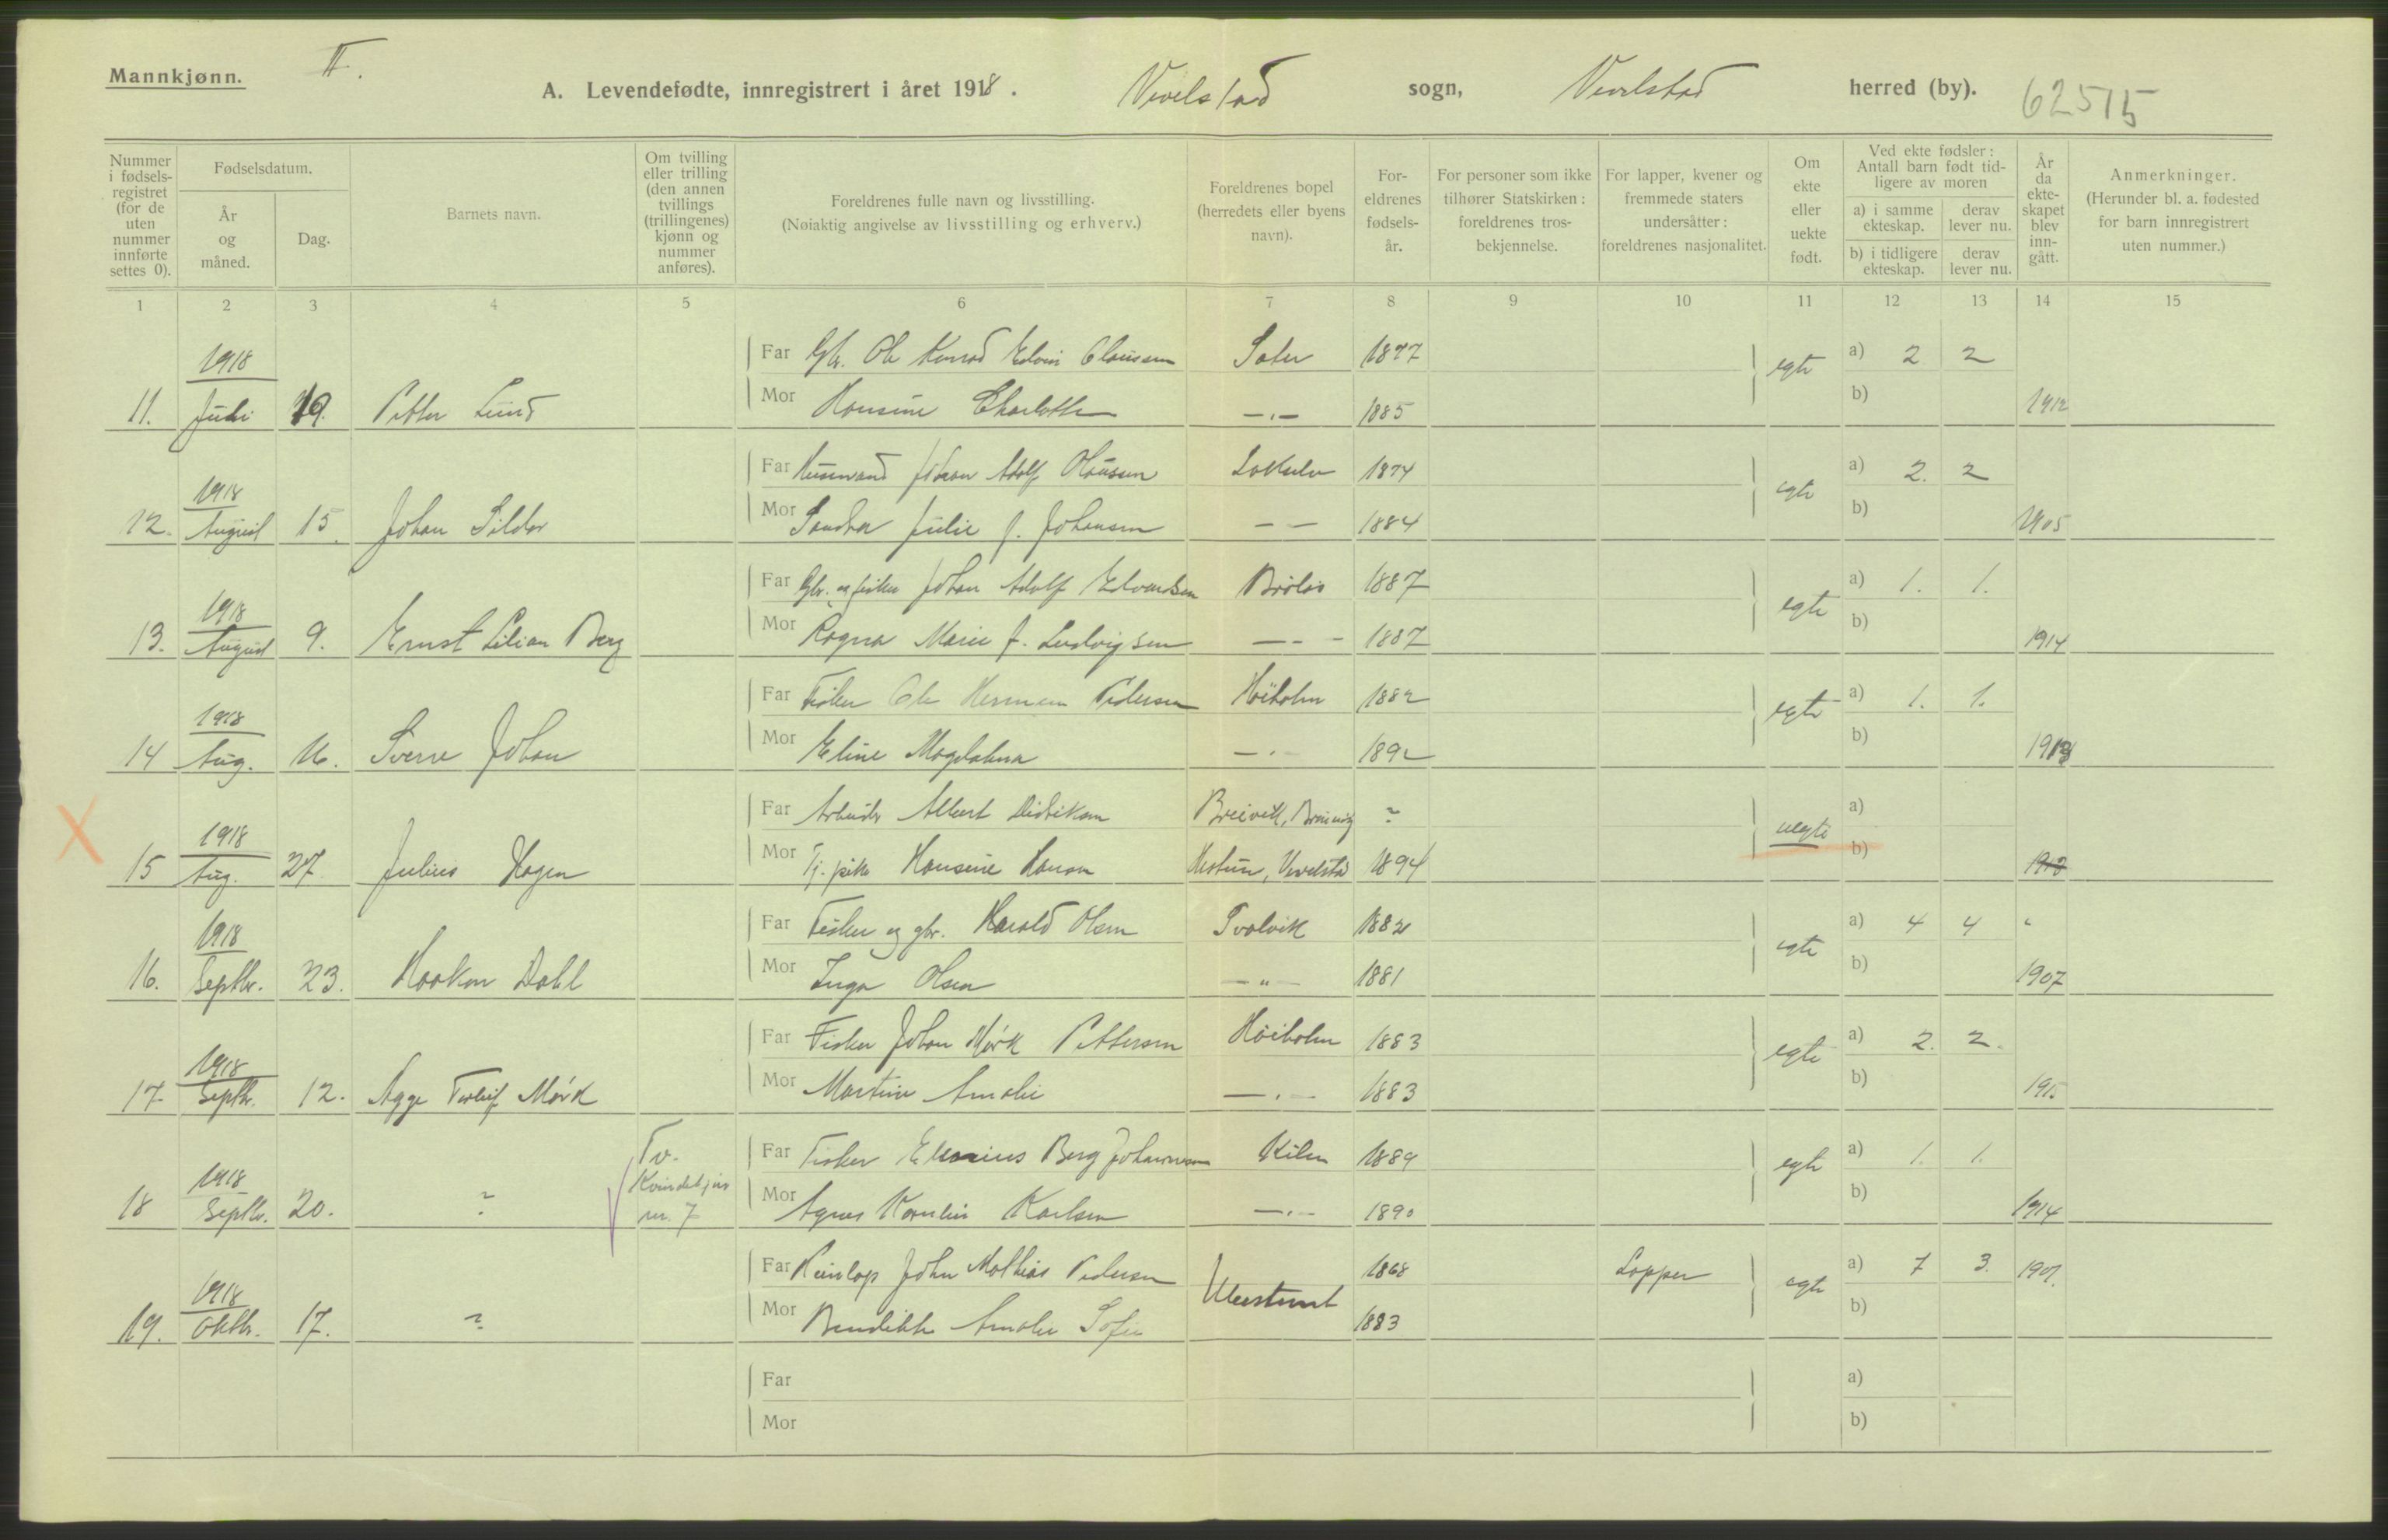 Mannkjønn.
II.
A. Levendefødte, innregistrert i året 1918. Vevelstad sogn, Vevelstad herred (by). 62515
Nummer i fødsels-registret (for de uten nummer innførte settes 0).
Fødselsdatum.
År og måned.
Dag.
Barnets navn.
Om tvilling eller trilling (den annen tvillings (trillingenes) kjønn og nummer anføres).
Foreldrenes fulle navn og livsstilling.
(Nøiaktig angivelse av livsstilling og erhverv.)
Foreldrenes bopel (herredets eller byens navn).
For-eldrenes fødsels-år.
For personer som ikke tilhører Statskirken: foreldrenes tros-bekjennelse.
For lapper, kvener og fremmede staters undersåtter: foreldrenes nasjonalitet.
Om ekte eller uekte født.
Ved ekte fødsler: Antall barn født tid-ligere av moren
a) i samme ekteskap.
derav lever nu.
b) i tidligere ekteskap.
derav lever nu.
År da ekte-skapet blev inn-gått.
Anmerkninger.
(Herunder bl. a. fødested for barn innregistrert uten nummer.)
1 2 3 4 5 6 7 8 9 10 11 12 13 14 15
1918 Far Gbr. Ole Konrad Edvin Claussen 1877 egte a) 2 2
11. Juli 19. Petter Lund Mor Hansine Charlotte —.— 1885 b) 1912
1918 Far Husmand Johan Adolf Olaussen 1874 egte a) 2. 2
12. August 15. Johan Mor Sandra Julie J. Johansen — — 1884 b) 1905
1918 Far Gbr. og fisker Johan Adolf Edvardsen 1887 egte a) 1. 1.
13. August 9. Ernst Lilian Berg Mor Ragna Marie f. Ludvigsen — - - 1887 b) 1914
1918 Far Fisker Ole Herman Pedersen Høiholm 1882 egte a) 1. 1.
14 Aug. 16. Sverre Johan Mor Eline Magdalena —.— 1892 b) 1913
1918 Far Arbeider Albert Didriksen Breivik, ? uegte a)
15 Aug. 27. Julius Hagen Mor Tj. pike Hansine Hansen Vevelstad 1894 b)
1918 Far Fisker og gbr. Harald Olsen 1882 egte a) 4 4
16. Septbr. 23. Haakon Dahl Mor Inga Olsen — " — 1881 b) 1907
1918 Far Fisker Johan Mørk Pettersen Høiholm 1883 egte a) 2. 2.
17 Septbr. 12. Mørk Mor Martine Amalie —.— 1883 b) 1915
1918 Tv. Kvindekjøn nr. 7 Far Fisker Berg Johannessen Kilen 1889 egte a) 1. 1.
18 Septbr. 20. ? Mor Agnes Karlsen —.— 1890 b) 1914
1918 Far Johan Mathias Pedersen 1868 Lapper egte a) 7 3. 1907.
19. Oktbr. 17. ? Mor Bendikte Amalie Sofie 1883 b)
Far a)
Mor b)